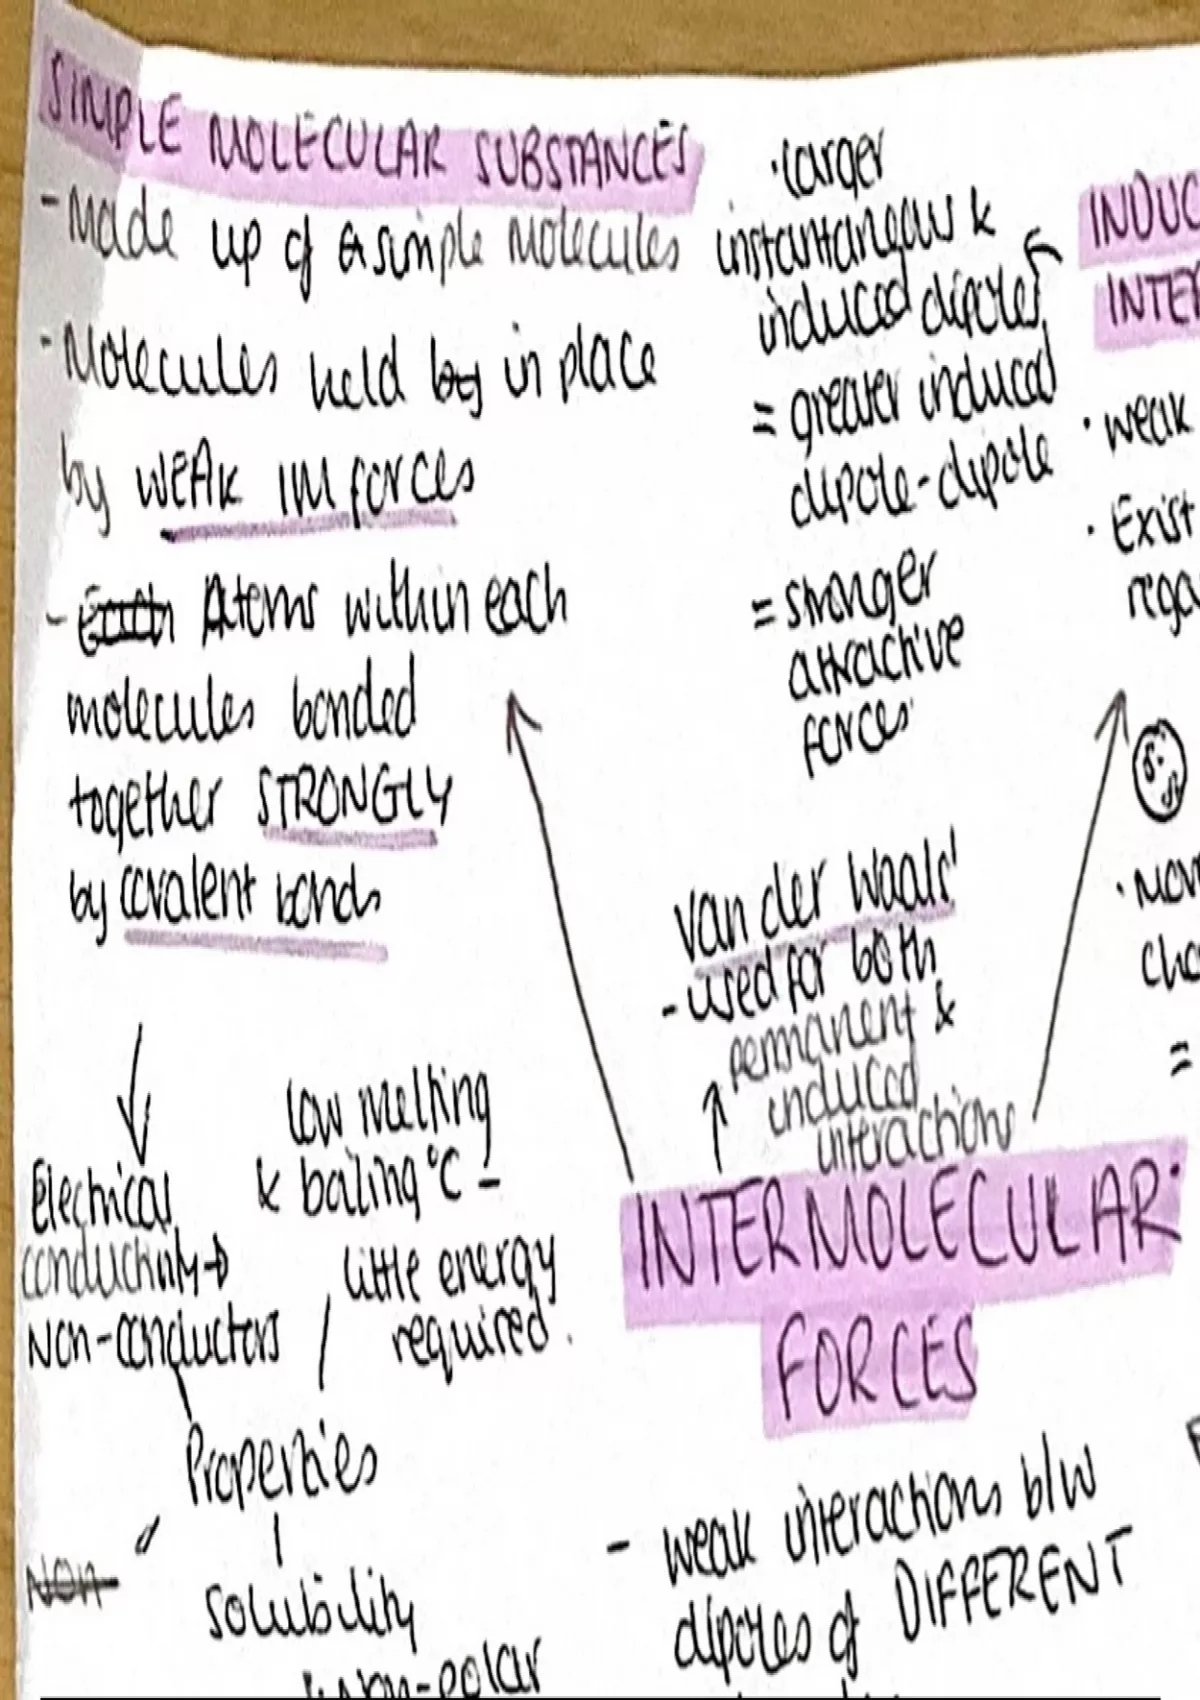 SIMPLE MOLECULAR SUBSTANCES
- Made up of simple Molecules
- Molecules held by in place
by WEAK IM forces
- Each Atoms within each
molecules bonded
together STRONGLY
by covalent bonds
Electrical
conductivity →
Non-conductors
low melting
& boiling °C -
little energy
required.
Properties
Non-
solubility
Non-polar
· larger
instantaneous &
induced dipoles
= greater induced
dipole-dipole
= stronger
attractive
forces
van der Waals'
- used for both
permanent &
induced
interactions
INTERMOLECULAR
FORCES
- weak interactions b/w
dipoles of DIFFERENT
INDUC
INTER
· weak
· Exist
rega
δ-
δ+
· Mov
cha
=